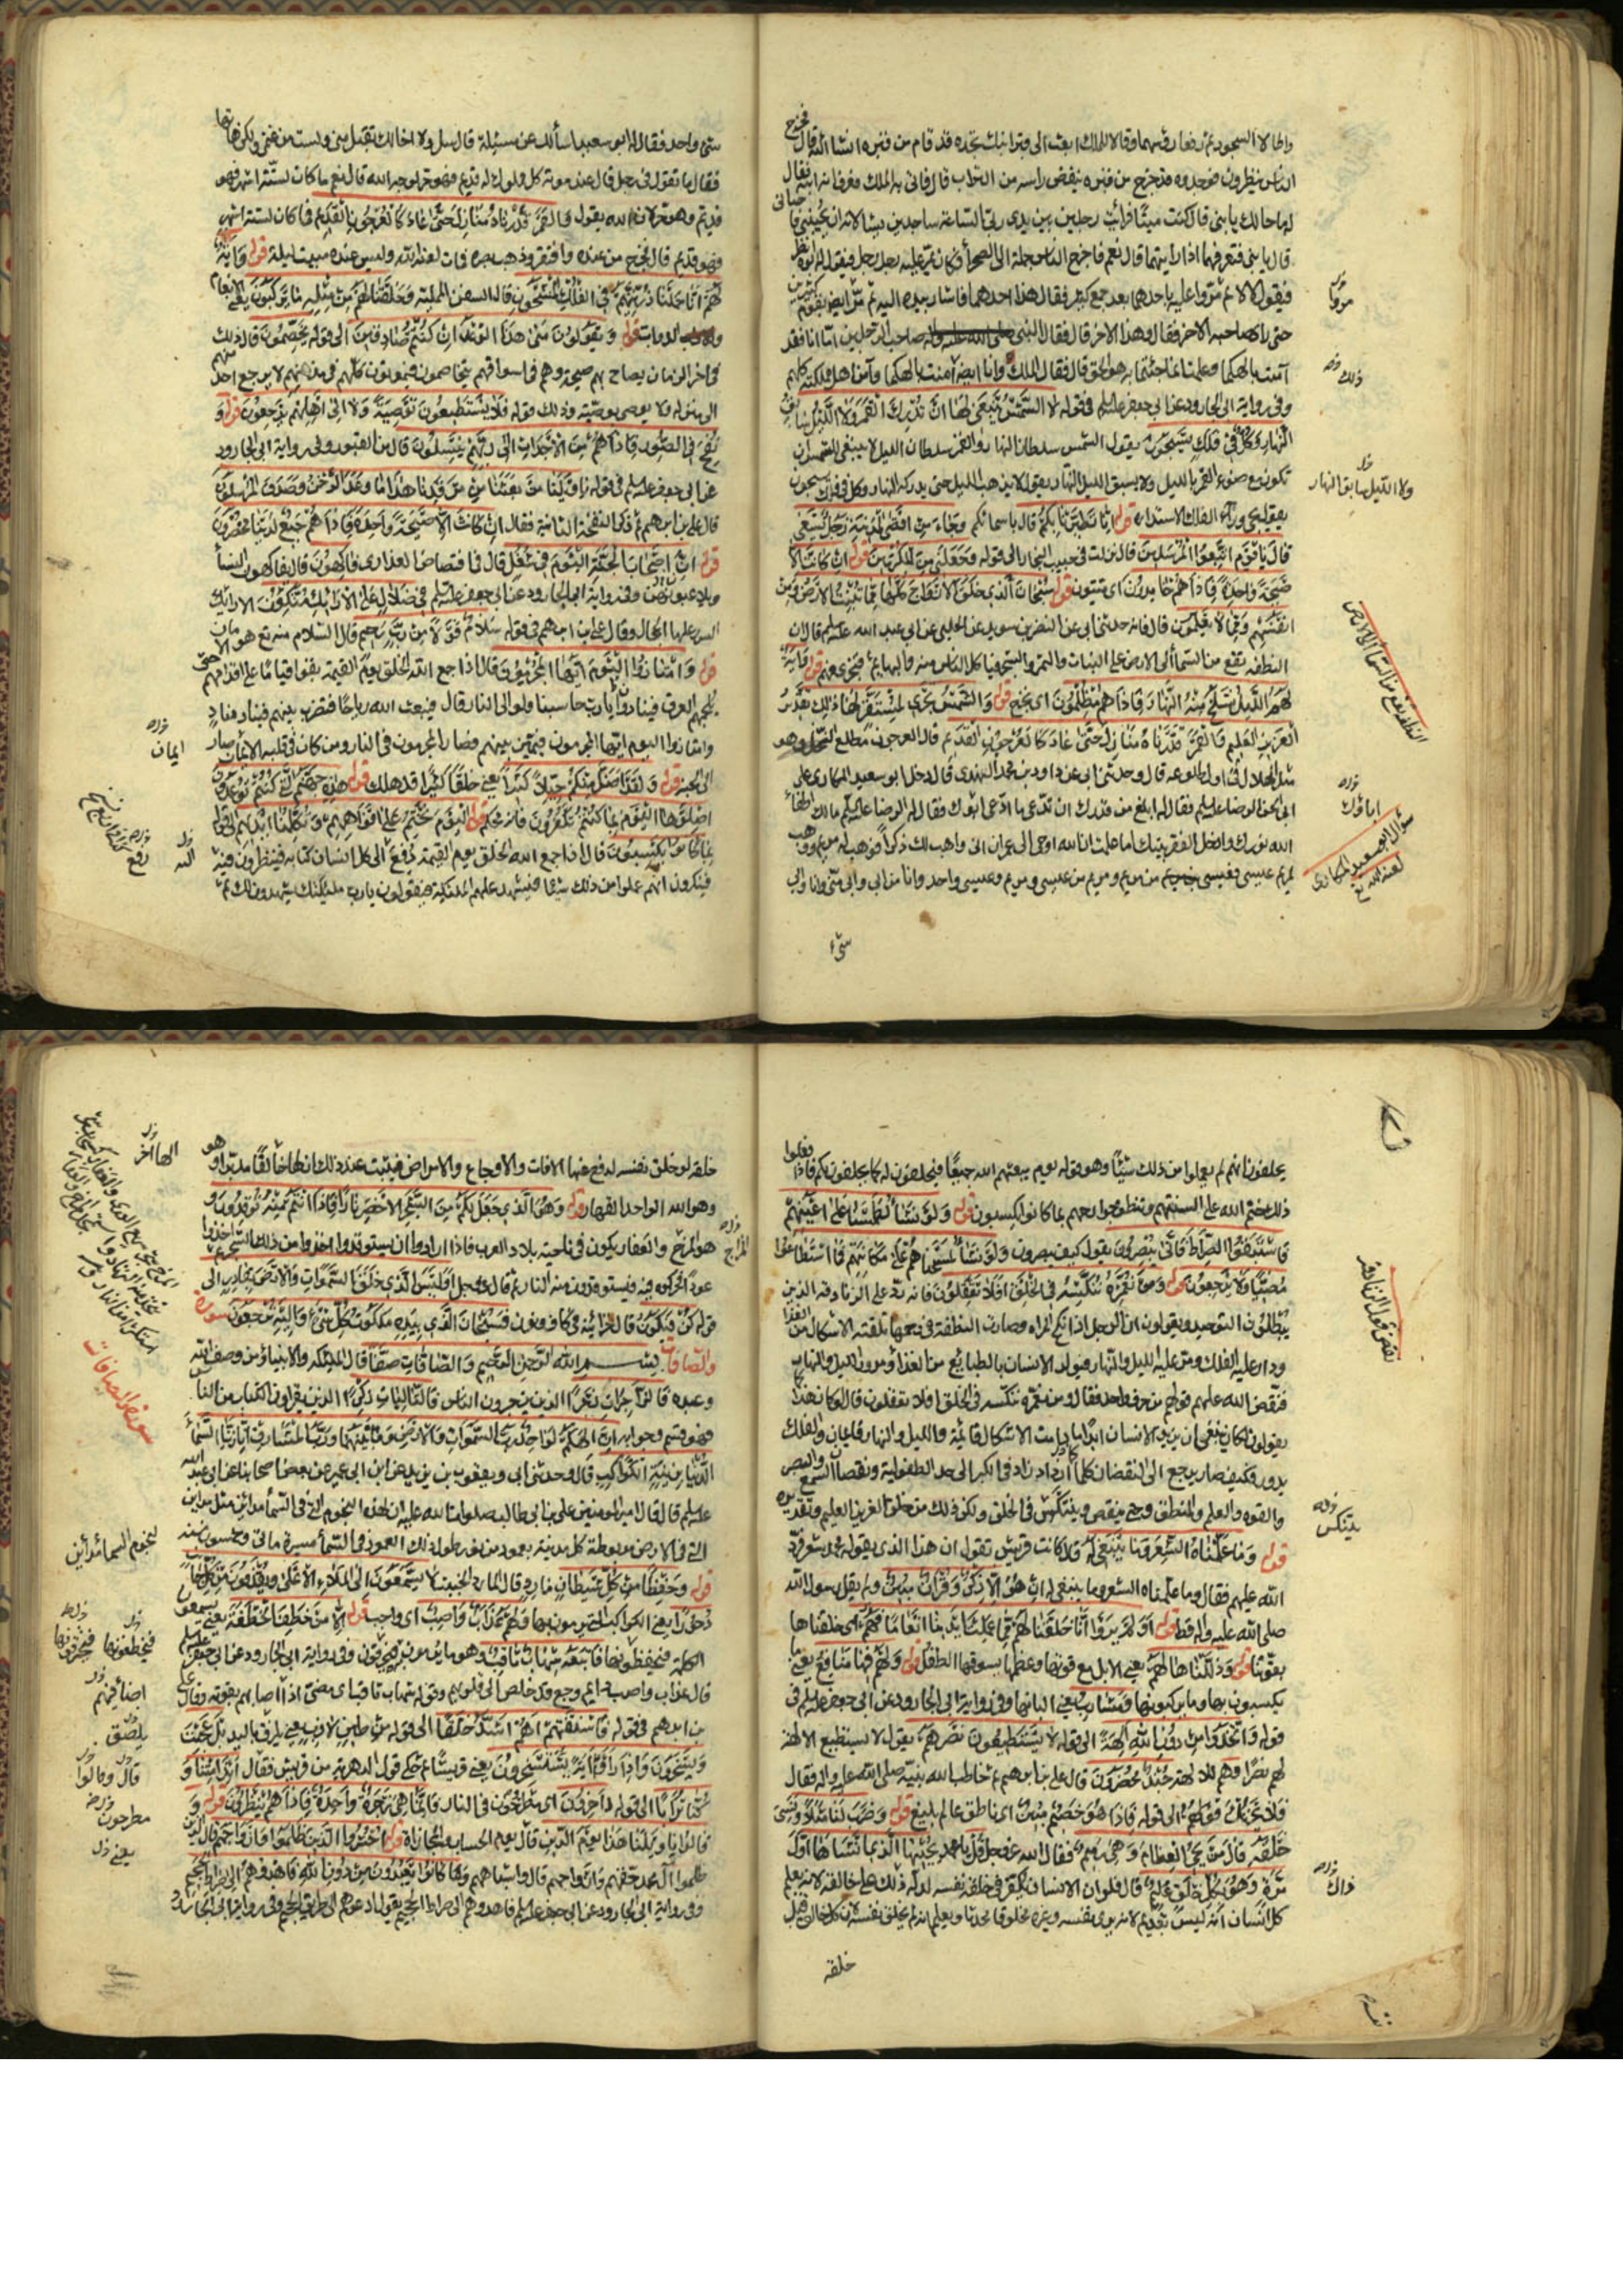 واطالا السجود ثم رفعا رؤسهما وقالا للملك ابعث الى قبر ابنك تجده قد قام من قبره انشا الله قال فخرج
الناس ينظرون فوجدوه قد خرج من قبره ينفض راسه من التراب قال فاتى به الملك فعرف انه ابنه فقال
له ما حالك يا بنى قال كنت ميتا فرأيت رجلين بين يدى ربى الساعة ساجدين يسئلانه ان يحيينى فاحيانى
قال يا بنى فتعرفهما اذا رايتهما قال نعم فاخرج الناس جملة الى الصحراء فكان يمر عليه رجل رجل فيقول له ابوه انظر
فيقول لا لا ثم مروا عليه باحدهما بعد جمع كثير فقال هذا احدهما فاشار بيده اليه ثم مر ايضا بقوم كثيرين
حتى راى صاحبه الاخر فقال وهذا الاخر قال فقال النبى صاحب الرجلين اما انا فقد
آمنت بالهكما وعلمت ان ما جئتما به هو الحق قال فقال الملك وانا ايضا آمنت بالهكما وآمن اهل مملكته كلهم
وفى رواية ابى الجارود عن ابى جعفر عليه السلم فى قوله لا الشمس ينبغى لها ان تدرك القمر ولا الليل سابق
النهار وكل فى فلك يسبحون يقول الشمس سلطان النهار والقمر سلطان الليل لا ينبغى للشمس ان
تكون مع ضوء القمر بالليل ولا يسبق الليل النهار يقول لا يذهب الليل حتى يدركه النهار وكل فى فلك يسبحون
يقول يجئ وراء الفلك الاستدارة قوله انا تطيرنا بكم قال باسمائكم وجاء من اقصى المدينة رجل يسعى
قال يا قوم اتبعوا المرسلين قال نزلت فى حبيب النجار الى قوله وجعلنى من المكرمين قوله ان كانت الا
صيحة واحدة فاذا هم خامدون اى ميتون قوله سبحان الذى خلق الازواج كلها مما تنبت الارض ومن
انفسهم ومما لا يعلمون قال فانه حدثنى ابى عن النضر بن سويد عن الحلبى عن ابى عبد الله عليه السلم قال ان
النطفه تقع من السماء الى الارض على النبات والثمر والشجر فياكل الناس منه والبهايم فتجرى فيهم قوله وآية
لهم الليل نسلخ منه النهار فاذا هم مظلمون اى نخرج قوله والشمس تجرى لمستقر لها ذلك تقدير
العزيز العليم والقمر قدرناه منازل حتى عاد كالعرجون القديم قال العرجون مطلع النخل وهو
مثل الهلال فى اول طلوعه قال وحدثنى ابى عن داود بن محمد النهدى قال دخل ابو سعيد المكارى على
ابى الحسن الرضا عليه السلم فقال له ابلغ من قدرك ان تدعى ما ادعى ابوك فقال له الرضا عليه السلم مالك اطفأ
الله نورك وادخل الفقر بيتك اما علمت ان الله اوحى الى عمران انى واهب لك ذكرا فوهب له مريم ووهب
لمريم عيسى فعيسى من مريم ومريم من عيسى ومريم وعيسى واحد وانا من ابى وابى منى وانا وابى
شئ
ذلك
ولا الليل سابق النهار
النطفه تقع من السماء الى الارض
اباؤك
سؤال ابى سعيد المكارى
لعنه الله
شئ واحد فقال له ابو سعيد اسألك عن مسئلة قال سل ولا اخالك تقبل منى ولست من غنمى ولكن هاتها
فقال ما تقول فى رجل قال عند موته كل مملوك له قديم فهو حر لوجه الله قال نعم ما كان لستة اشهر فهو
قديم وهو حر لان الله يقول والقمر قدرناه منازل حتى عاد كالعرجون القديم فما كان لستة اشهر
فهو قديم قال فخرج من عنده وافتقر وذهب بصره فمات لعنه الله وليس عنده مبيت ليلة قوله وآية
لهم انا حملنا ذريتهم فى الفلك المشحون قال السفن المملئة وخلقنا لهم من مثله ما يركبون يعنى الانعام
والدواب قوله ويقولون متى هذا الوعد ان كنتم صادقين الى قوله يخصمون قال ذلك
فى اخر الزمان يصاح بهم صيحة وهم فى اسواقهم يتخاصمون فيموتون كلهم فى مكانهم لا يرجع احد منهم
الى منزله ولا يوصى بوصية وذلك قوله فلا يستطيعون توصية ولا الى اهلهم يرجعون قوله و
نفخ فى الصور فاذا هم من الاجداث الى ربهم ينسلون قال من القبور وفى رواية ابى الجارود
عن ابى جعفر عليه السلم فى قوله يا ويلنا من بعثنا من مرقدنا هذا ما وعد الرحمن وصدق المرسلون
قال على بن ابرهيم ثم ذكر النفخة الثانية فقال ان كانت الا صيحة واحدة فاذا هم جميع لدينا محضرون
قوله ان اصحاب الجنة اليوم فى شغل قال فى افتضاض العذارى فاكهون قال يفاكهون النسأ
ويلاعبونهن وفى رواية ابى الجارود عن ابى جعفر عليه السلم فى ظلال على الارائك متكئون الارائك
السرر عليها الحجال وقال على بن ابرهيم فى قوله سلام قولا من رب رحيم قال السلام منه تع هو الامان
قوله وامتازوا اليوم ايها المجرمون قال اذا جمع الله الخلق يوم القيمة بقوا قياما على اقدامهم حتى
يلجمهم العرق فينادوا يا رب حاسبنا ولو الى النار قال فيبعث الله رياحا فتضرب بينهم فينادى مناد
وامتازوا اليوم ايها المجرمون فيميز بينهم فصار المجرمون فى النار ومن كان فى قلبه الايمان صار
الى الجنة قوله ولقد اضل منكم جبلا كثيرا يعنى خلقا كثيرا قد هلك قوله هذه جهنم التى كنتم توعدون
اصلوها اليوم بما كنتم تكفرون قوله اليوم نختم على افواههم وتكلمنا ايديهم الى قوله
بما كانوا يكسبون قال اذا جمع الله الخلق يوم القيمة دفع الى كل انسان كتابه فينظرون فيه
فينكرون انهم عملوا من ذلك شيئا فيشهد عليهم الملئكة فيقولون يا رب ملئكتك يشهدون لك ثم
ايمان
رفع
اليه
يحلفون انهم لم يعملوا من ذلك شيئا وهو قوله يوم يبعثهم الله جميعا فيحلفون له كما يحلفون لكم فاذا فعلوا
ذلك ختم الله على السنتهم وتنطق جوارحهم بما كانوا يكسبون قوله ولو نشأ لطمسنا على اعينهم
فاستبقوا الصراط فانى يبصرون يقول كيف يبصرون ولو نشأ لمسخناهم على مكانتهم فما استطاعوا
مضيا ولا يرجعون قوله ومن نعمره ننكسه فى الخلق افلا تعقلون فانه رد على الزنادقة الذين
يبطلون التوحيد ويقولون ان الرجل اذا نكح المراه وصارت النطفة فى رحمها تلقته الاشكال من الغذا
ودار عليه الفلك ومر عليه الليل والنهار فيولد الانسان بالطبايع من الغذاء ومرور الليل والنهار
فنقض الله عليهم قولهم من حرف واحد فقال ومن نعمره ننكسه فى الخلق افلا يعقلون قال لو كان هذا كما
يقولون لكان ينبغى ان يزيد الانسان ابدا ما دامت الاشكال قائمة والليل والنهار قايمان والفلك
يدور فكيف صار يرجع الى النقصان كلما ازداد فى الكبر الى حد الطفولية ونقصان السمع والبصر
والقوه والعلم والمنطق حتى ينقص وينتكس فى الخلق ولكن ذلك من خلق العزيز العليم وتقديره
قوله وما علمناه الشعر وما ينبغى له قال كانت قريش تقول ان هذا الذى يقوله محمد شعر فرد
الله عليهم فقال وما علمناه الشعر وما ينبغى له ان هو الا ذكر وقرآن مبين ولم يقل رسول الله
صلى الله عليه واله شعرا قط قوله اولم يروا انا خلقنا لهم مما عملت ايدينا انعاما فهم اى خلقناها
بقوتنا قوله وذللناها لهم يعنى الابل مع قوتها وعظمها يسوقها الطفل قوله ولهم فيها منافع يعنى ما
يكسبون بها وما يركبونها ومشارب يعنى البانها وفى رواية ابى الجارود عن ابى جعفر عليه السلم فى
قوله واتخذوا من دون الله الهة الى قوله لا يستطيعون نصرهم يقول لا يستطيع الالهة
لهم نصرا وهم للالهة جند محضرون قال على بن ابرهيم ثم خاطب الله نبيه صلى الله عليه واله فقال
فلا يحزنك قولهم الى قوله فاذا هو خصيم مبين اى ناطق عالم بليغ قوله وضرب لنا مثلا ونسى
خلقه قال من يحيى العظام وهى رميم فقال الله عز وجل قل يا محمد يحييها الذى انشأها اول
مرة وهو بكل خلق عليم قال فلو ان الانسان تفكر فى خلقه نفسه لدله ذلك على خالقه لانه يعلم
كل انسان انه ليس بقديم لانه يرى نفسه وغيره مخلوقا محدثا ويعلم انه لم يخلق نفسه لان كل خالق قبل
خلقه
نقض قول الزنادقه
ينتكس
ذاك
خلقه لو خلق نفسه لدفع عنها الافات والاوجاع والامراض فيثبت عند ذلك ان لها خالقا مدبرا هو
وهو الله الواحد القهار قوله وهو الذى جعل لكم من الشجر الاخضر نارا فاذا انتم منه توقدون و
هو المرخ والعفار يكون فى ناحية بلاد العرب فاذا ارادوا ان يستوقدوا اخذوا من ذلك الشجر ثم اخذوا
عودا فحركوه فيه فيستوقدون منه النار ثم قال عز وجل اوليس الذى خلق السموات والارض بقادر الى
قوله كن فيكون قال خزائنه فى كاف ونون فسبحان الذى بيده ملكوت كل شئ واليه ترجعون سورة
والصافات بسم الله الرحمن الرحيم والصافات صفا قال الملئكه والانبياؤ من وصف الله
وعبده فالزاجرات زجرا الذين يزجرون الناس فالتاليات ذكرا الذين يقراون الكتاب من الناس
فهو قسم وجوابه ان الهكم لواحد رب السموات والارض وما بينهما ورب المشارق انا زينا السمأ
الدنيا بزينة الكواكب قال وحدثنى ابى ويعقوب بن يزيد عن ابن ابى عمير عن بعض اصحابنا عن ابى عبد الله
عليه السلم قال قال امير المومنين على بن ابى طالب صلوات الله عليه ان لهذه النجوم التى فى السمأ مداين مثل مداين
التى فى الارض مربوطة كل مدينة بعمود من نور طول ذلك العمود فى السمأ مسيرة ماتى وخمسون سنه
قوله وحفظا من كل شيطان مارد قال المارد الخبيث لا يسمعون الى الملاء الاعلى ويقذفون من كل جانب
دحورا يعنى الكواكب التى يرمون بها ولهم عذاب واصب اى واجب قوله الا من خطف الخطفة يعنى يسمعون
الكلمة فيحفظونها فاتبعه شهاب ثاقب وهو ما يرمون به فيحرقون وفى رواية ابى الجارود عن ابى جعفر عليه السلم
قال عذاب واصب اى دايم وجع قد خلص الى قلوبهم وقوله شهاب ثاقب اى مضئ اذا اصابهم بقوته وقال على
بن ابرهيم فى قوله فاستفتهم اهم اشد خلقا الى قوله من طين لازب يعنى يلزق باليد بل عجبت
ويسخرون واذا راوا آية يستسخرون يعنى قريشا ثم حكى قول الدهرية من قريش فقال ائذا متنا و
كنا ترابا الى قوله داخرون اى مطروحون فى النار فانما هى زجرة واحدة فاذا هم ينظرون قوله و
قالوا يا ويلنا هذا يوم الدين قال يوم الحساب والمجازاة قوله احشروا الذين ظلموا وازواجهم قال الذين
ظلموا آل محمد حقهم وازواجهم قال واشباههم وما كانوا يعبدون من دون الله فاهدوهم الى صراط الجحيم
وفى رواية ابى الجارود عن ابى جعفر عليه السلم فاهدوهم الى صراط الجحيم يقول ادعوهم الى طريق الجحيم وفى رواية ابى الجارود
الها آخر
سورة الصافات
فيخطفونها
يلصق
قال وقالوا
مطرحون
يعنى